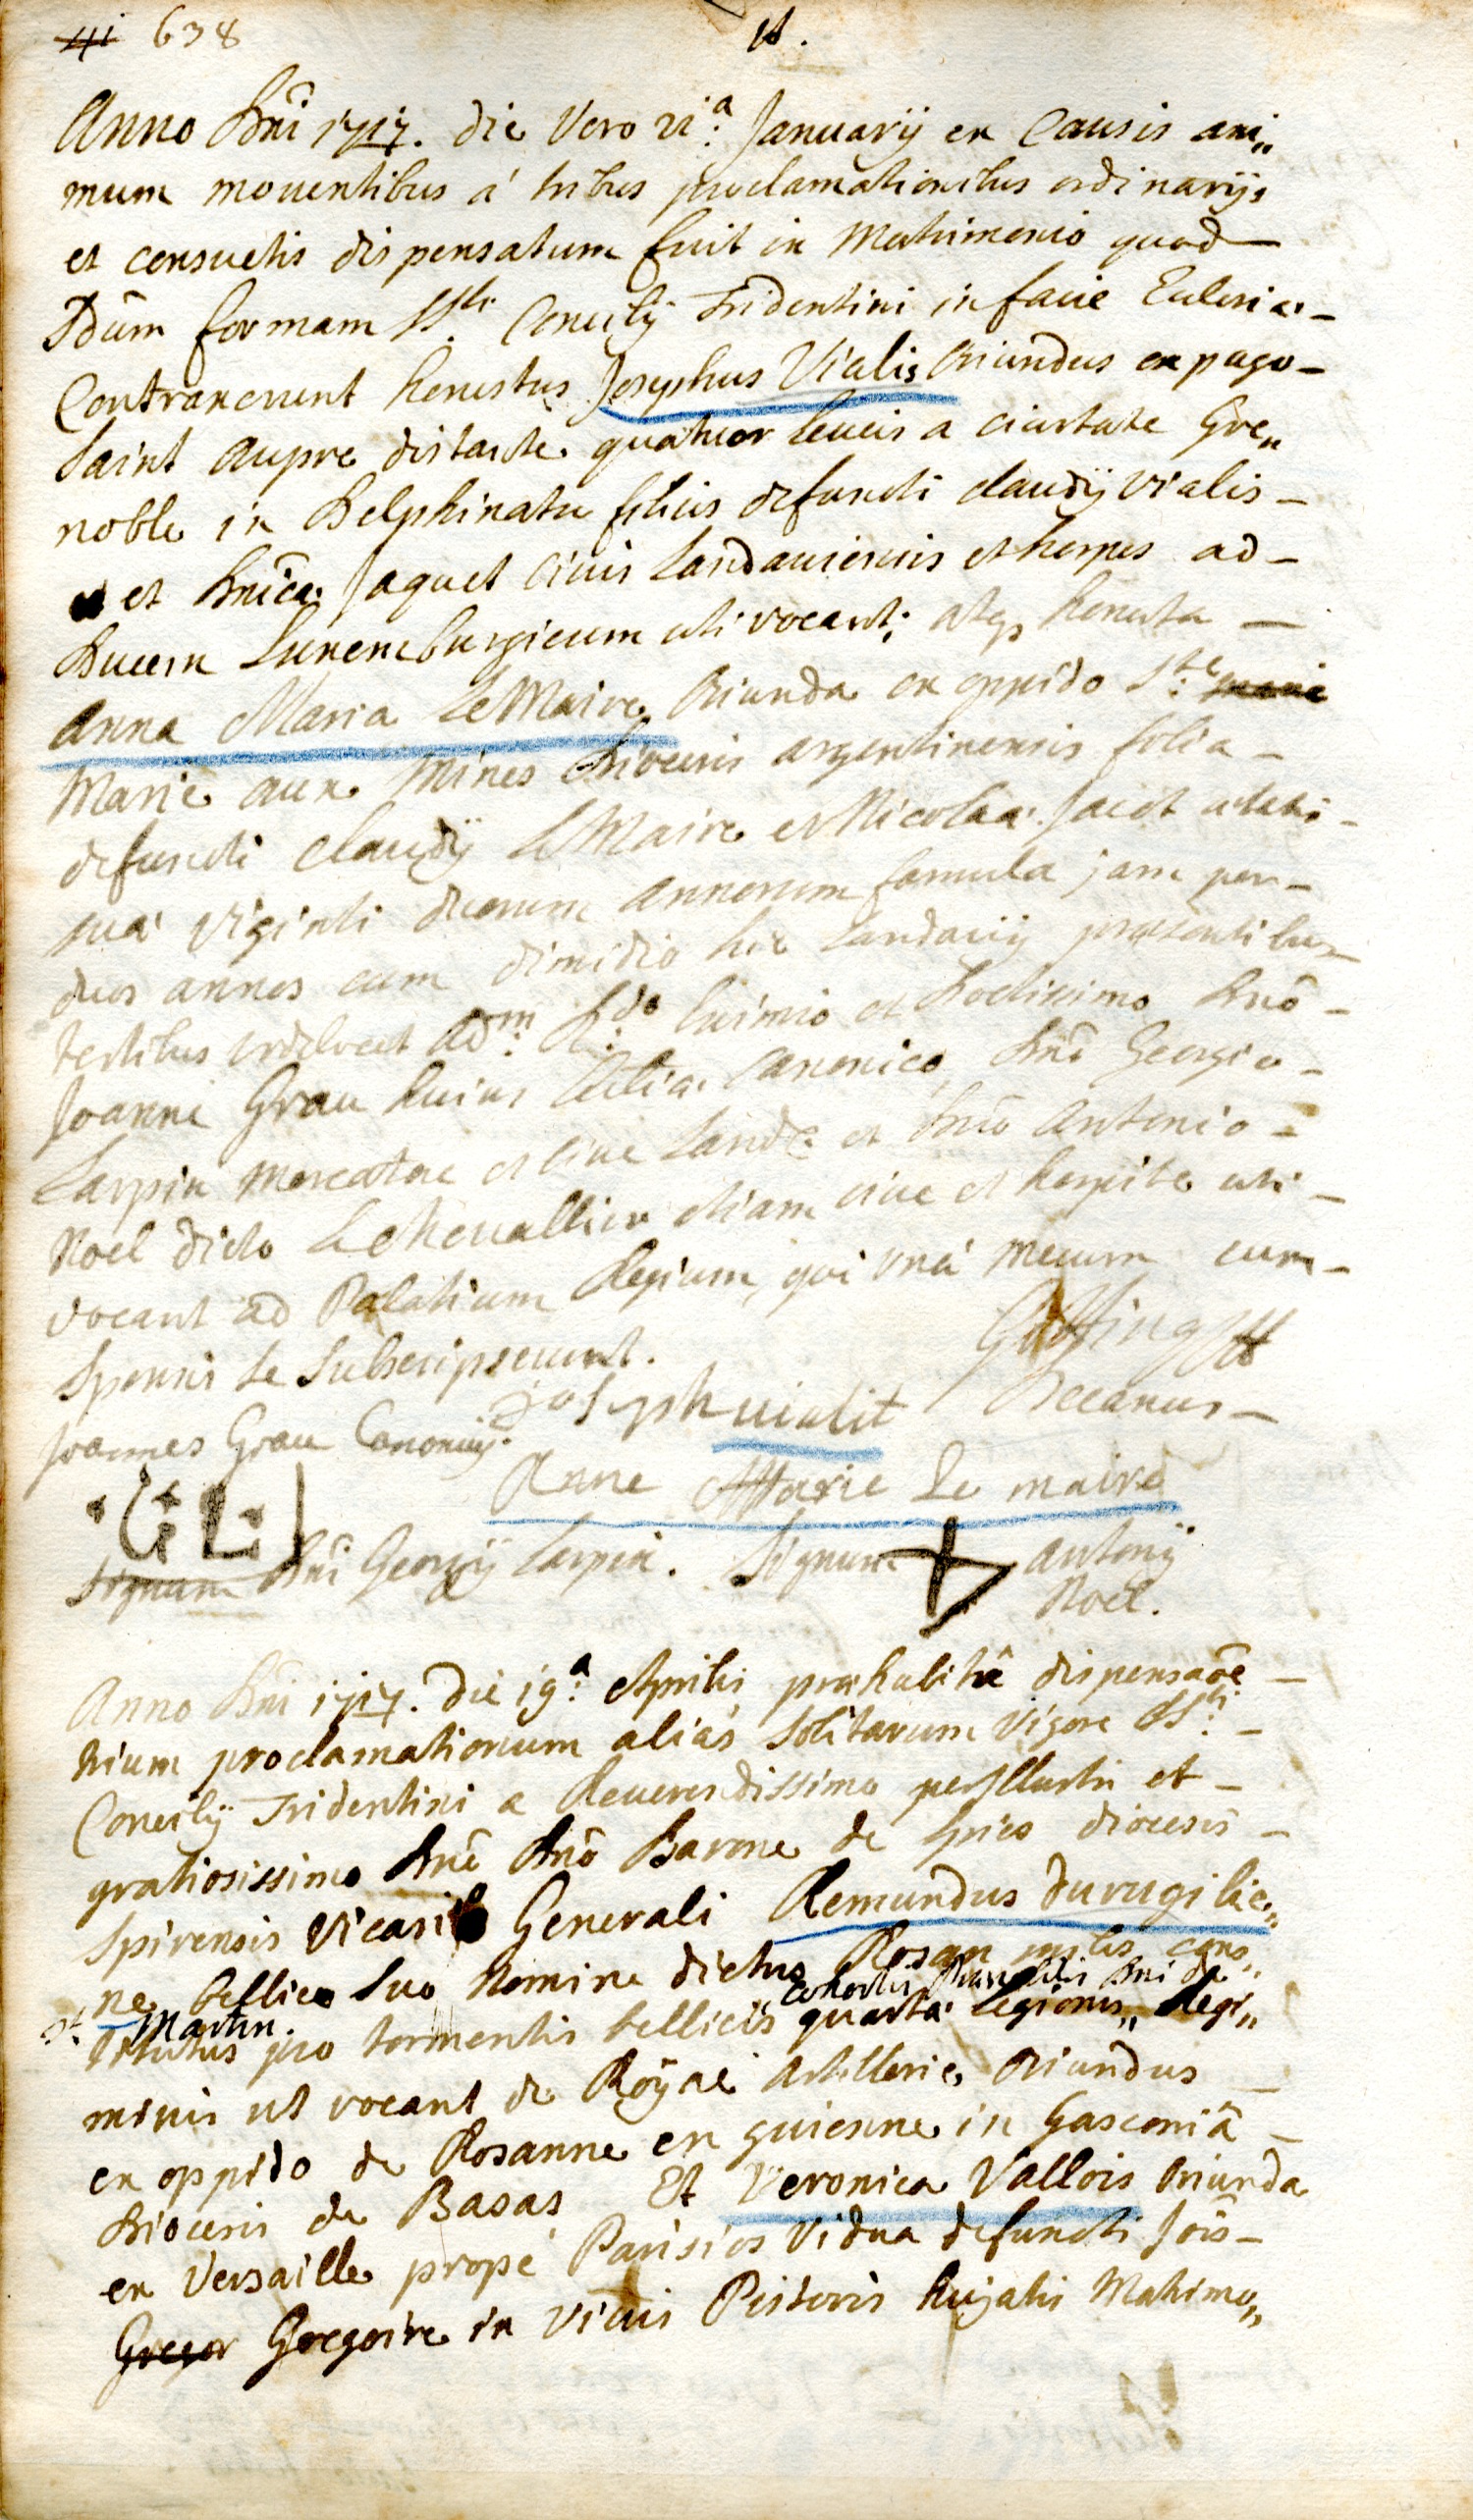 41 638
Anno Dnĩ 1717. die Vero 21.ᵃ Januarÿ ex Causis ani„
mum mouentibus à tribus proclamationibus ordinarijs
et consuetis dispensatum fuit in Matrimonio quod
Sdũm formam SSti. Concilÿ Tridentini in facie Eclesiæ
Contraxerunt honestus Josephus Vialis Oriundus ex pago
Saint Aupre distante quatuor leucis a ciuitate Gre„
noble in Delphinatu filius defuncti claudÿ vialis
et Dnĩcæ Jaquet Ciuis Landauiensis et hospes ad
Ducem Luxemburgicum uti vocant; atq, honesta
Anna Maria LeMaire Oriunda ex oppido Ste. marie
Marie aux Mines Diœcesis argentinensis folia
defuncti Claudÿ LeMaire et Nicolaæ Jacot ætatis
suæ Viginti duorum Annorum famula jam per
duos annos cum dimidio hic Landauÿ præsentibus
testibus videlicet Adm. R.do Eximio et Doctissimo Dnõ
Joanne Grau huius Eccliæ Canonico, Dnõ Georgio
Larpin Mercatore et Ciue Land: et Dnõ Antonio
Noel dicto Le Cheuallier etiam ciue et hospite uti
vocant ad Palatium Regium, qui unà mecum cum
Sponsis se Subscripserunt.
Decanus
Joannes Grau Canonicus.
Joseph uialit
Anne Marie Le maire
G L
Signum Dnĩ Georgÿ Larpin. Signum Antonÿ
Noel.
Anno Dnĩ 1717. die 19.ᵃ Aprilis præhabitâ dispensaõe
trium proclamationum aliàs Solitarum Vigore SSti.
Concilÿ Tridentini a Reuerendissimo perIllustri et
gratiosissimo Dnõ Dnõ Barone de Spies diœcesis
Spirensis Vicario Generali Remundus durugilie„
ne bellico Suo Nomine dictus Rosan miles cons„
cohortis Dni de
St. Martin.
titutus pro tormentis bellicis quartæ Legionis„ Regi„
minis ut vocant de Roÿal Artillerie, Oriundus
ex oppido de Rosanne en guienne in Gasconiâ
Diœcesis de Basas Et Veronica Vallois Oriunda
ex Versaille propè Parisios Vidua defuncti Joĩs
Gregor Gregoire in Viuis Pistoris hujatis Matrimo„